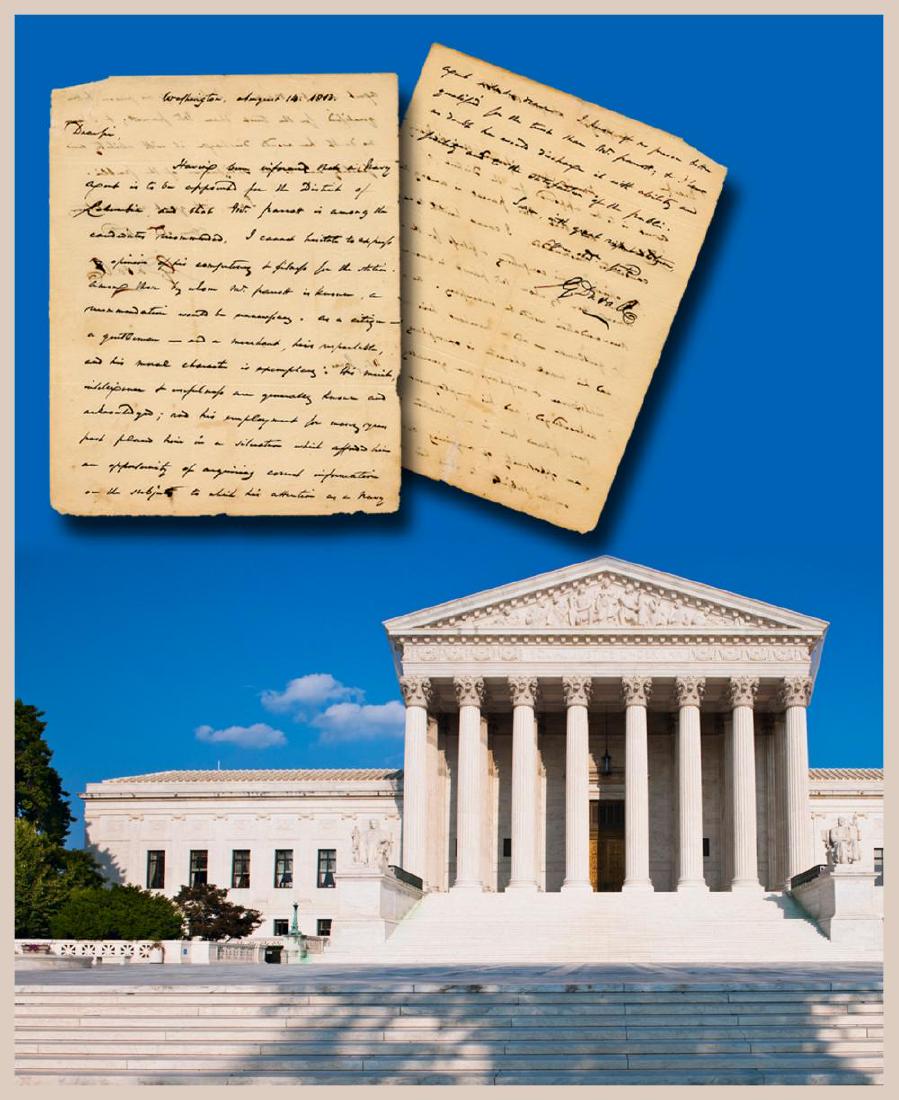 Washington, August 14. 1813.
Dear sir,
Having been informed that a Navy
agent is to be appointed for the District of
Columbia, and that Mr. Parrott is among the
candidates recommended, I cannot hesitate to express
my opinion of his competency & fitness for the station.
Among those by whom Mr. Parrott is known, a
recommendation would be unnecessary. As a citizen—
a gentleman — and a merchant, he is respectable,
and his moral character is exemplary. His
intelligence & usefulness are generally known and
acknowledged; and his employment for many years
past placed him in a situation which afforded him
an opportunity of acquiring correct information
on the subject to which his attention as a Navy
agent
I know of no person better
qualified for the trust than Mr. Parrott, & I have
no doubt he would discharge it with ability and
and to the satisfaction of the public.
I am with great
G Duvall